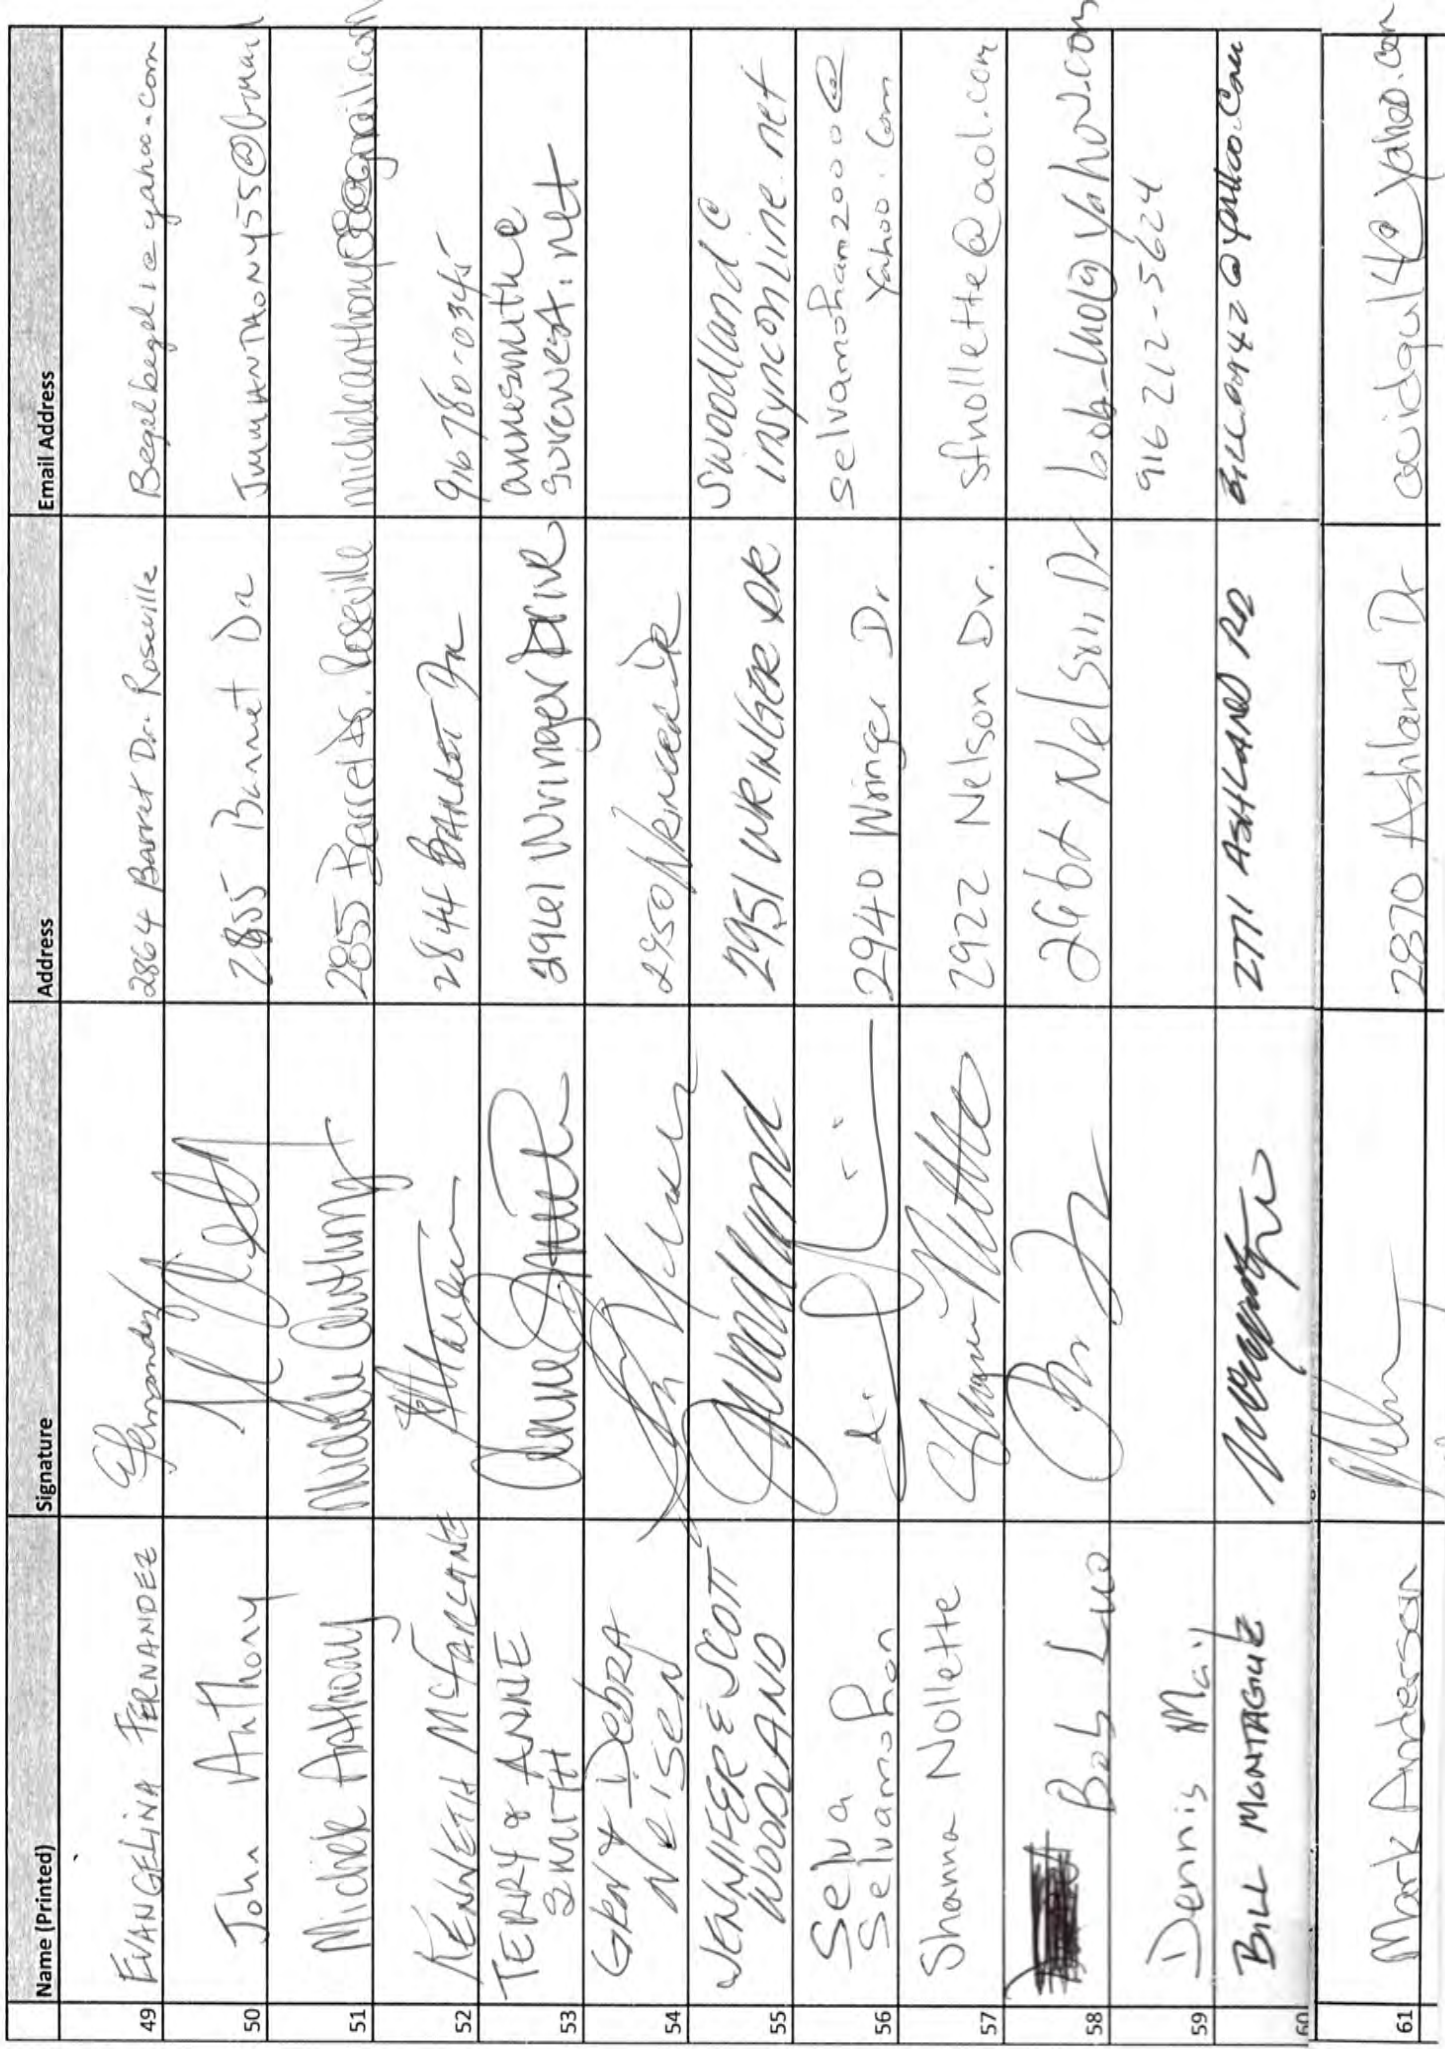 Name (Printed) Signature Address Email Address
49 EVANGELINA FERNANDEZ 2864 Barret Dr. Roseville Begelbegel1@yahoo.com
50 John Anthony 2855 Barret Dr
51 Michele Anthony Michele Anthony 2855 Barret Dr. Roseville
52 KENNETH MCFARLANE 2844 BARRET Dr 916 780-0345
53 TERRY & ANNE
SMITH Anne Smith Wringer Drive annesmith@
surewest.net
54 Grant Debra
Neisen 2950
55 JENNIFER & SCOTT
WOODLAND 2951 WRINGER DR swoodland@
insynconline.net
56 Selva
Selvamohan 2940 Wringer Dr selvamohan2000@
yahoo.com
57 Shanna Nollette Shanna Nollette 2922 Nelson Dr. sfnollette@aol.com
58 Bob Luo Nelson Dr bob_luo@yahoo.com
59 Dennis Mail 916 212-5624
60 BILL MONTAGUE 2771 ASHLAND RD
61 Mark Anderson 2870 Ashland Dr